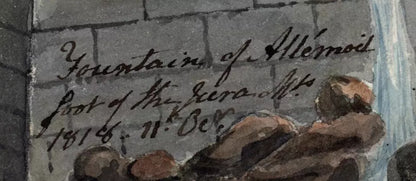 Fountain of Allémoil
foot of the Jura Mts
1818. 11th Octr